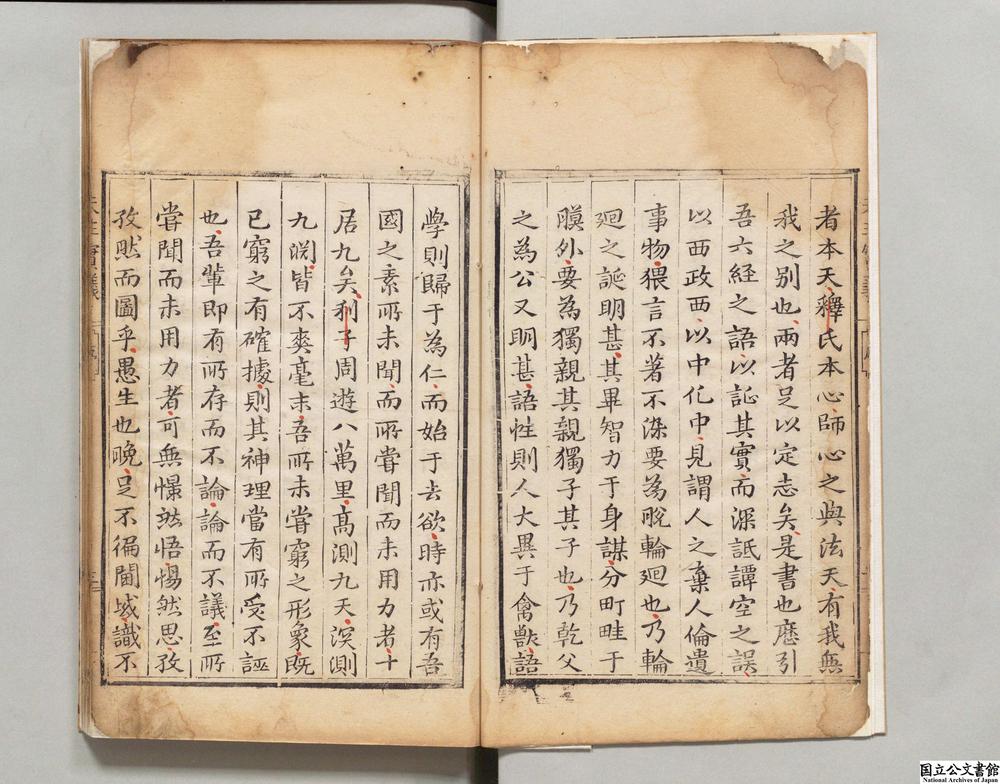 者本天釋氏本心師心之與法天有我無
我之別也兩者足以定志矣是書也歷引
吾六経之語以証其實而深詆譚空之誤
以西政西以中化中見謂人之棄人倫遺
事物猥言不著不染要為脫輪廻也乃輪
廻之誕明甚其畢智力于身謀分町畦于
膜外要為獨親其親獨子其子也乃乾父
之為公又明甚語性則人大異于禽獸語
學則歸于為仁而始于去欲時亦或有吾
國之素所未聞而所嘗聞而未用力者十
居九矣利子周遊八萬里高測九天深測
九淵皆不爽毫末吾所未嘗窮之形象既
已窮之有確據則其神理當有所受不誣
也吾輩即有所存而不論論而不議至所
嘗聞而未用力者可無憬然悟惕然思孜
孜然而圖乎愚生也晚足不徧閫域識不
国立公文書館
National Archives of Japan